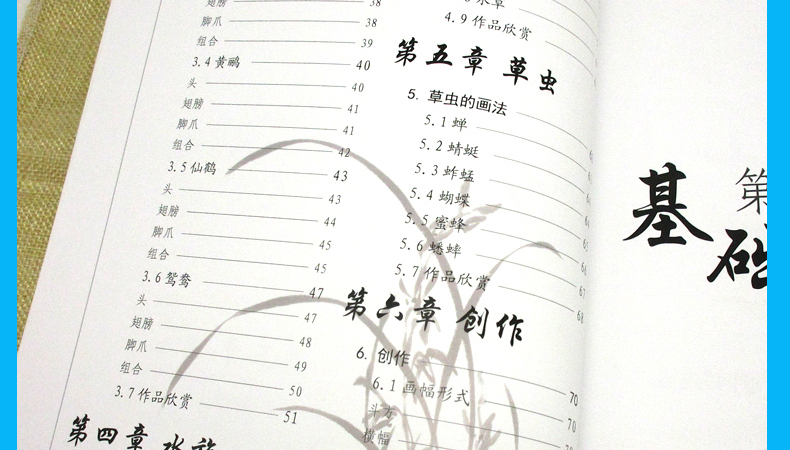 翅膀 38
脚爪 38
组合 39
3.4 黄鹂 40
头 40
翅膀 41
脚爪 41
组合 42
3.5 仙鹤 43
头 43
翅膀 44
脚爪 45
组合 45
3.6 鸳鸯 47
头 47
翅膀 48
脚爪 49
组合 50
3.7 作品欣赏 51
第四章 水族
水草
4.9 作品欣赏
第五章 草虫
5. 草虫的画法
5.1 蝉
5.2 蜻蜓
5.3 蚱蜢
5.4 蝴蝶 65
5.5 蜜蜂 66
5.6 蟋蟀 67
5.7 作品欣赏 68
第六章 创作
6. 创作 70
6.1 画幅形式 70
斗方
横幅
第
基础